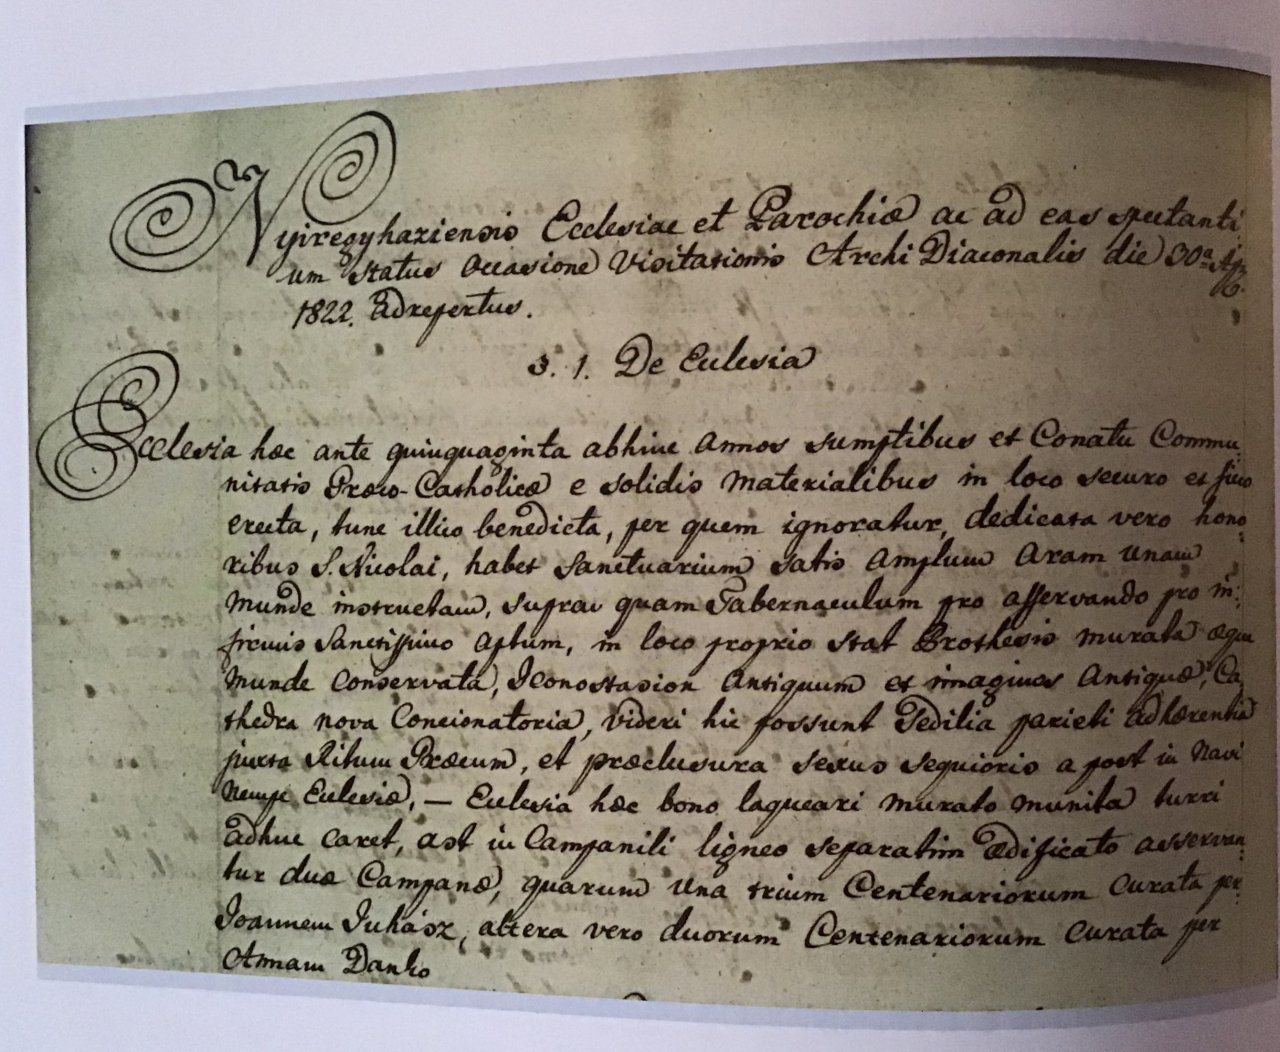 Nyiregyhaziensis Ecclesiae et Parochiæ ac ad eas spectanti
um status occasione Visitationis Archi Diaconalis die 30a
1822. adrepertus.
§. 1. De Ecclesia
Ecclesia hæc ante quinquaginta abhinc annos sumptibus et Conatu Commu„
nitatis Græco-Catholicæ e solidis materialibus in loco securo et sicco
erecta, tunc illico benedicta, per quem ignoratur, dedicata vero hono„
ribus S. Nicolai, habet Sanctuarium satis amplum Aram unam
munde instructam, supra quam Tabernaculum pro asservando pro in„
firmis Sanctissimo aptum, in loco proprio stat Prothesis murata æque
munde conservata, Iconostasion antiquum et imagines antiquæ, Ca
thedra nova Concionatoria, videri hic possunt Sedilia parieti adhærentia
juxta Ritum Græcum, et præclusura sexus sequioris a post in Navi
nempe Ecclesiæ, — Ecclesia hæc bono laqueari murato munita turri
adhuc caret, ast in Campanili ligneo separatim ædificato asservan„
tur duæ Campanæ, quarum una trium Centenariorum curata per
Joannem Juhász, altera vero duorum Centenariorum curata per
Annam Danko